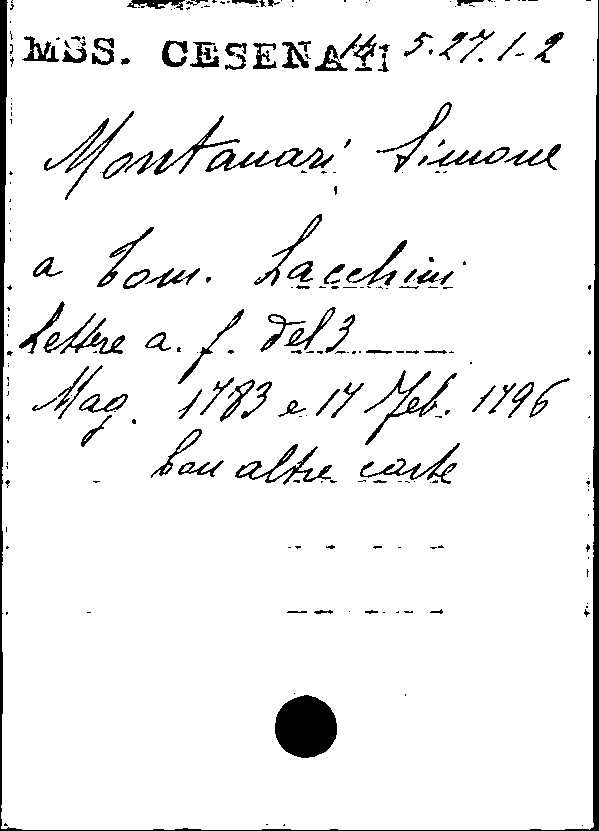 MSS. CESENATI 14. 5.27.1-2
Montanari Simone
a Com. Lacchini
Lettere a. f. del 3
Mag. 1783 e 17 Feb. 1796
Con altre carte